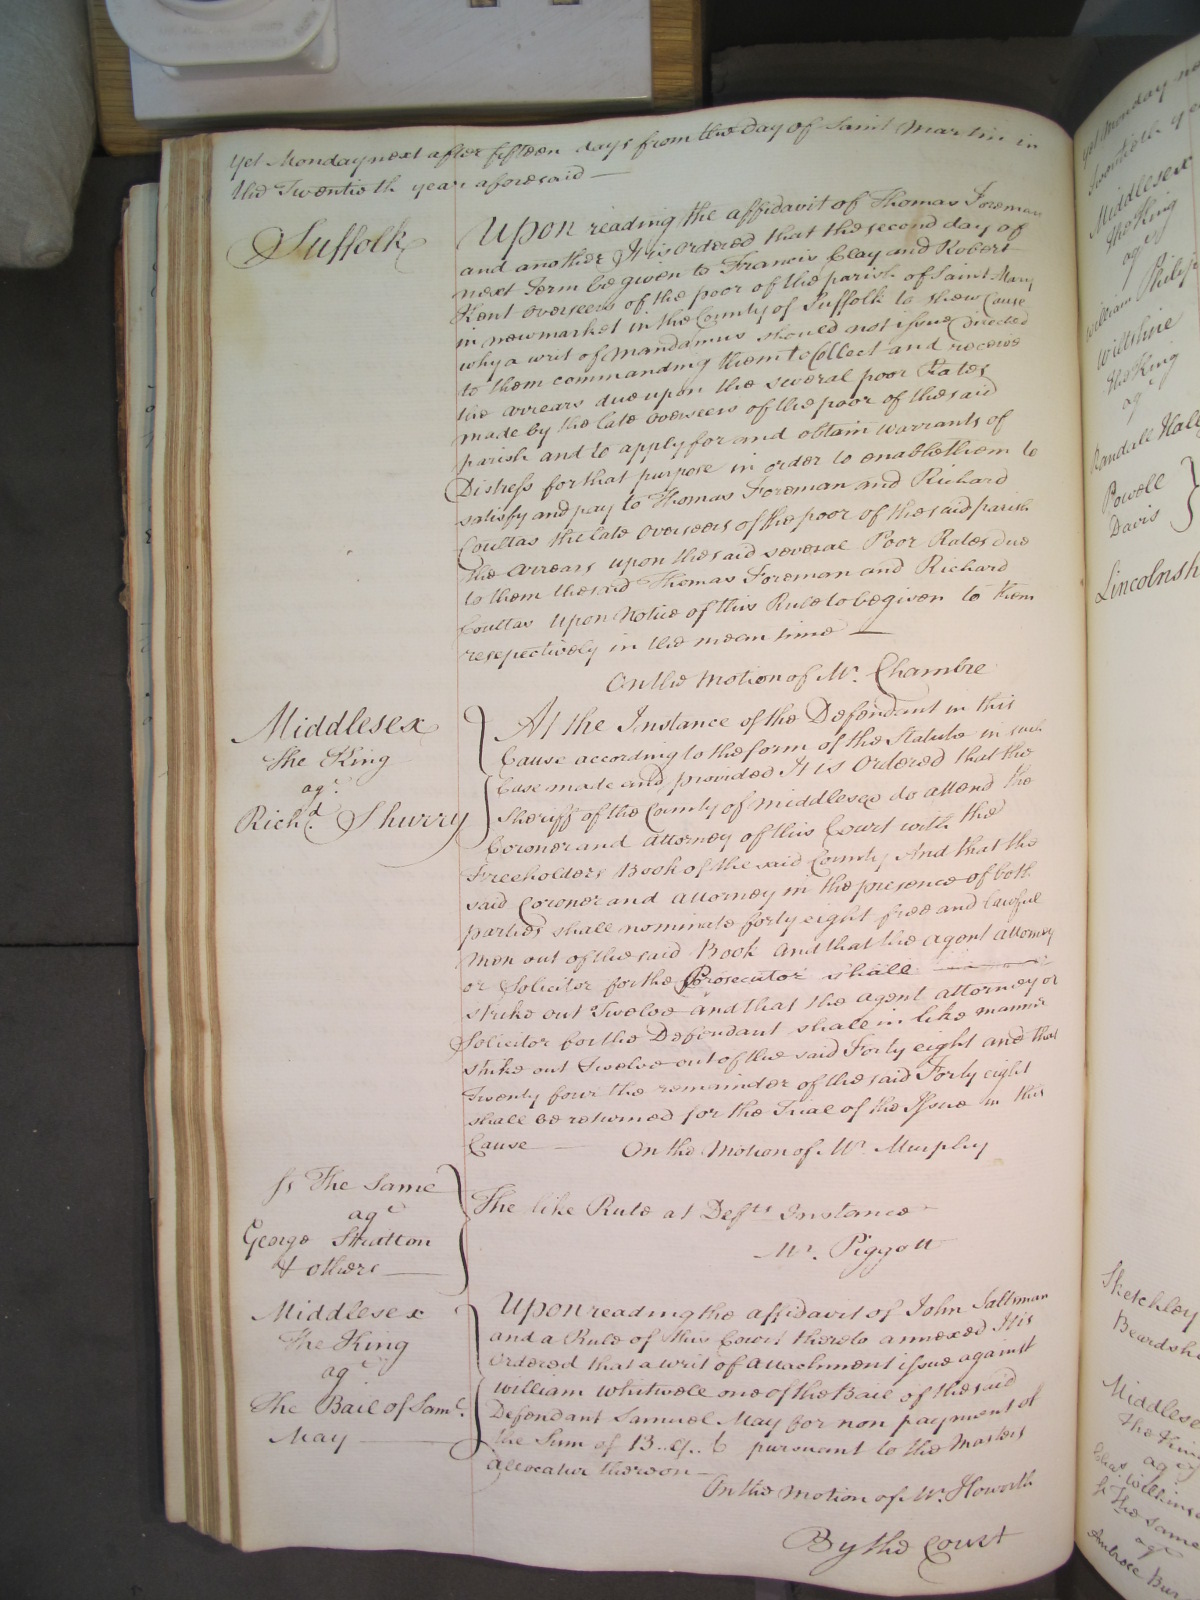 Yet Monday next after fifteen days from the day of Saint Martin in
the Twentieth year aforesaid —
Suffolk
Upon reading the affidavit of Thomas Foreman
and another It is ordered that the second day of
next Term be given to Francis Clay and Robert
Kent overseers of the poor of the parish of Saint Mary
in newmarket in the County of Suffolk to shew Cause
why a writ of Mandamus should not issue Directed
to them commanding them to Collect and receive
the arrears due upon the several poor Rates
made by the late overseers of the poor of the said
parish and to apply for and obtain warrants of
Distress for that purpose in order to enable them to
satisfy and pay to Thomas Foreman and Richard
Coultas the late overseers of the poor of the said parish
the arrears upon the said several Poor Rates due
to them the said Thomas Foreman and Richard
Coultas upon Notice of this Rule to be given to them
resepectively in the mean time —
On the Motion of Mr. Chambre
Middlesex
The King
agt.
Richd. Shurry
At the Instance of the Defendant in this
Cause according to the form of the Statute in such
Case made and provided It is Ordered that the
Sheriff of the County of Middlesex do attend the
Coroner and Attorney of this Court with the
Freeholders Book of the said County And that the
said Coroner and Attorney in the presence of both
parties shall nominate forty eight free and lawful
men out of the said Book and that the agent attorney
or Solicitor for the Prosecutor shall
strike out Twelve and that the agent attorney or
Solicitor for the Defendant shall in like manner
strike out Twelve out of the said Forty eight and that
Twenty four the remainder of the said Forty eight
shall be returned for the Trial of the Issue in this
Cause — On the Motion of Mr. Murphy
The Same
agt
George Stratton
& others —
The like Rule at Defts. Instance
Mr. Piggott
Middlesex
The King
agt
The Bail of Saml.
May —
Upon reading the affidavit of John Saltman
and a Rule of this Court thereto annexed It is
Ordered that a writ of attachment issue against
William Whitwell one of the Bail of the said
Defendant Samuel May for non payment of
the Sum of 13.. 9.. 6 pursuant to the Masters
allocatur thereon —
On the Motion of Mr. Howorth
By the Court
yet Monday
Twentieth
Middlesex
The King
agt
William
Wiltshire
The King
agt
Randall
Powell
Davis
Sketchley
The King
agt
The Same
agt
Ambrose